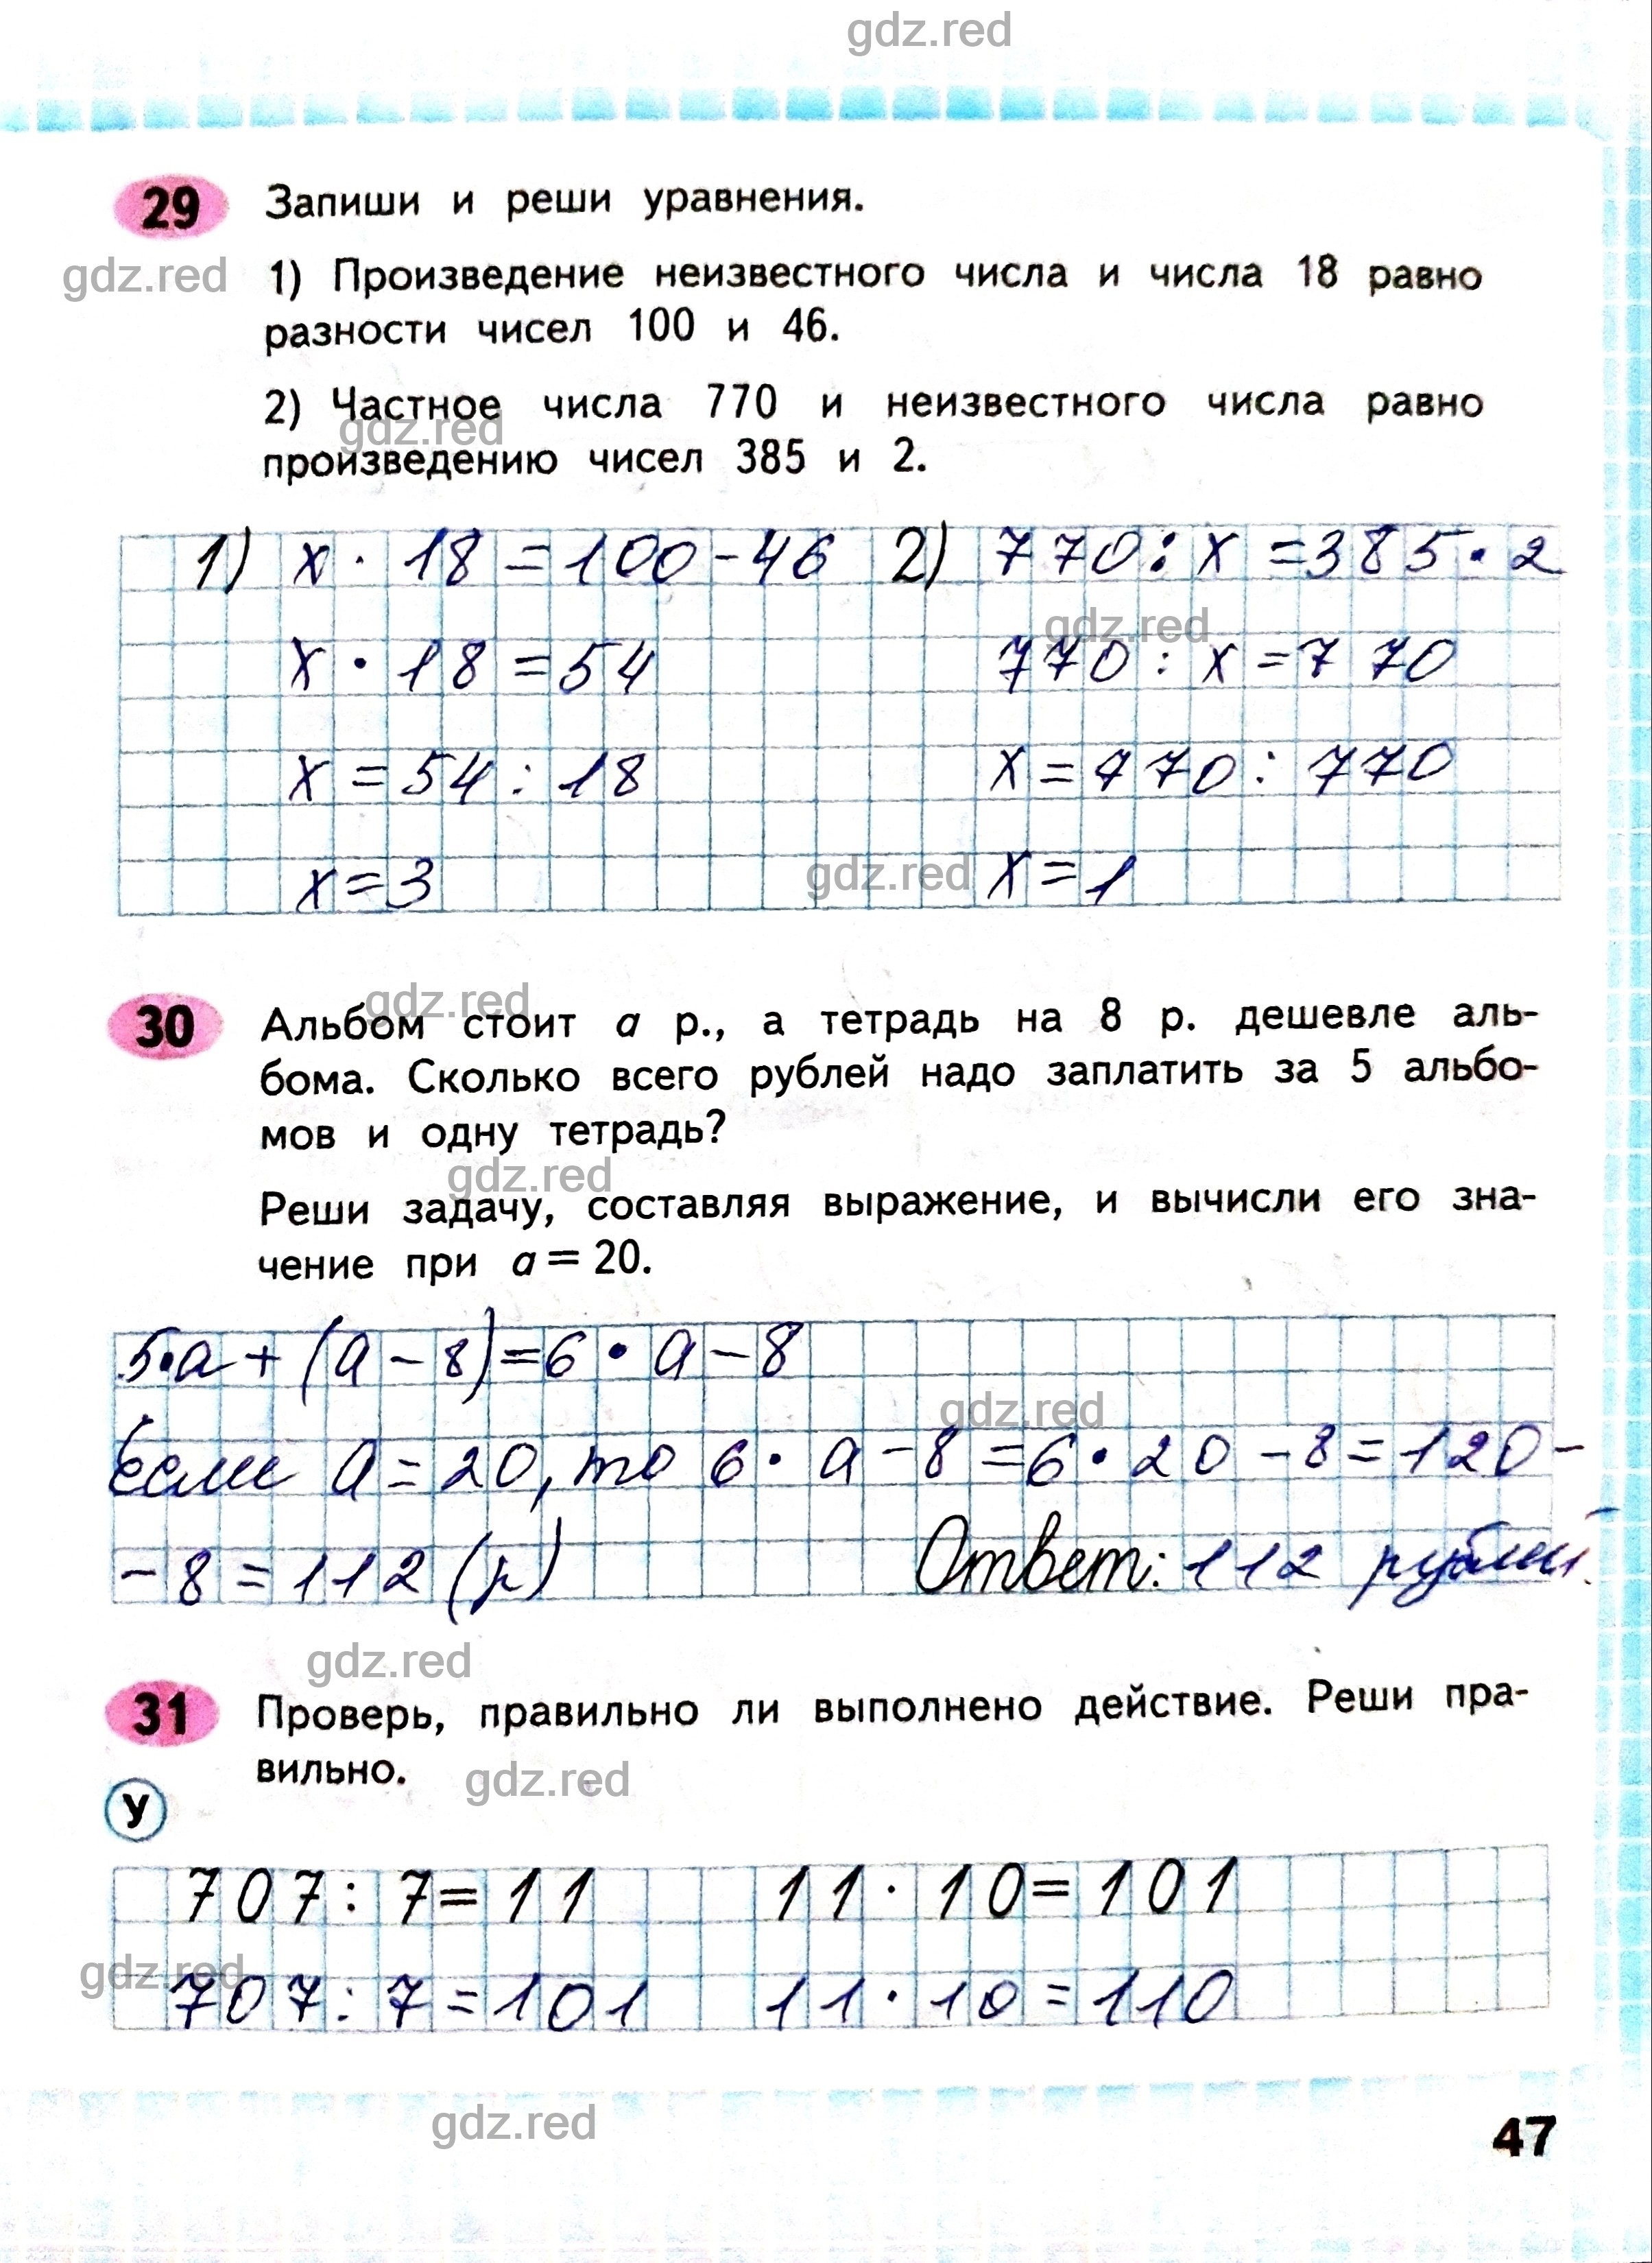 gdz.red
29 Запиши и реши уравнения.
gdz.red
1) Произведение неизвестного числа и числа 18 равно
разности чисел 100 и 46.
2) Частное числа 770 и неизвестного числа равно
gdz.red
произведению чисел 385 и 2.
1) х · 18 = 100 - 46 2) 770 : х = 385 · 2
gdz.red
х · 18 = 54 770 : х = 770
х = 54 : 18 х = 770 : 770
х = 3 gdz.red х = 1
gdz.red
30 Альбом стоит а р., а тетрадь на 8 р. дешевле аль-
бома. Сколько всего рублей надо заплатить за 5 альбо-
мов и одну тетрадь?
gdz.red
Реши задачу, составляя выражение, и вычисли его зна-
чение при а = 20.
5·а + (а - 8) = 6 · а - 8
gdz.red
если а = 20, то 6 · а - 8 = 6 · 20 - 8 = 120 -
- 8 = 112 (р) Ответ: 112 рублей.
gdz.red
31 Проверь, правильно ли выполнено действие. Реши пра-
вильно. gdz.red
У
707 : 7 = 11 11 · 10 = 101
gdz.red
707 : 7 = 101 11 · 10 = 110
gdz.red
47